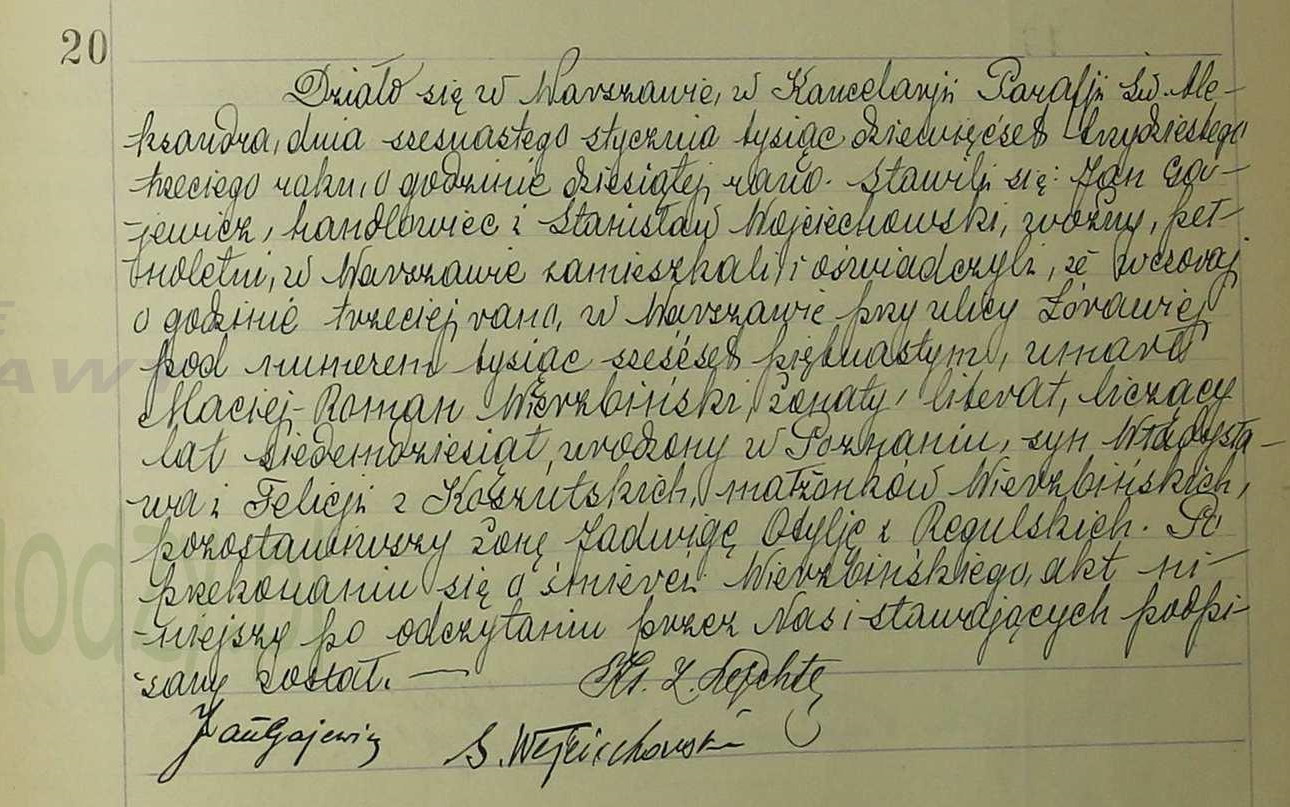 20
Działo się w Warszawie, w Kancelarji Parafji Św. Ale-
ksandra, dnia szesnastego stycznia tysiąc dziewięćset trzydziestego
trzeciego roku, o godzinie dziesiątej rano. Stawili się: Jan Ga-
jewicz, handlowiec i Stanisław Wojciechowski, woźny, peł-
noletni, w Warszawie zamieszkali, i oświadczyli, że wczoraj
o godzinie trzeciej rano, w Warszawie przy ulicy Żórawiej
pod numerem tysiąc sześćset piętnastym, umarł
Maciej-Roman Wierzbiński, żonaty, literat, liczący
lat siedemdziesiąt, urodzony w Poznaniu, syn Władysła-
wa i Felicji z Koszutskich, małżonków Wierzbińskich,
pozostawiwszy żonę Jadwigę Otylję z Regulskich. Po
przekonaniu się o śmierci Wierzbińskiego, akt ni-
niejszy po odczytaniu przez Nas i stawających podpi-
sany został. —
Ks. Z.
Jan Gajewicz
S. Wojciechowski